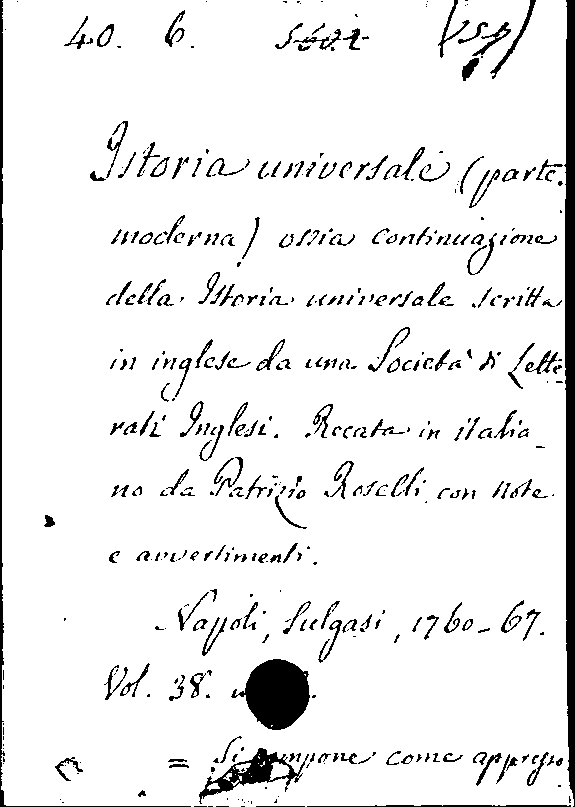 40. 6.
Istoria universale (parte
moderna) ossia continuazione
della Istoria universale scritta
in inglese da una Società di Lette-
rati Inglesi. Recata in italia-
no da Patrizio Roselli con note
e avvertimenti.
Napoli, Sulgasi, 1760-67.
Vol. 38.
= Si compone come appresso